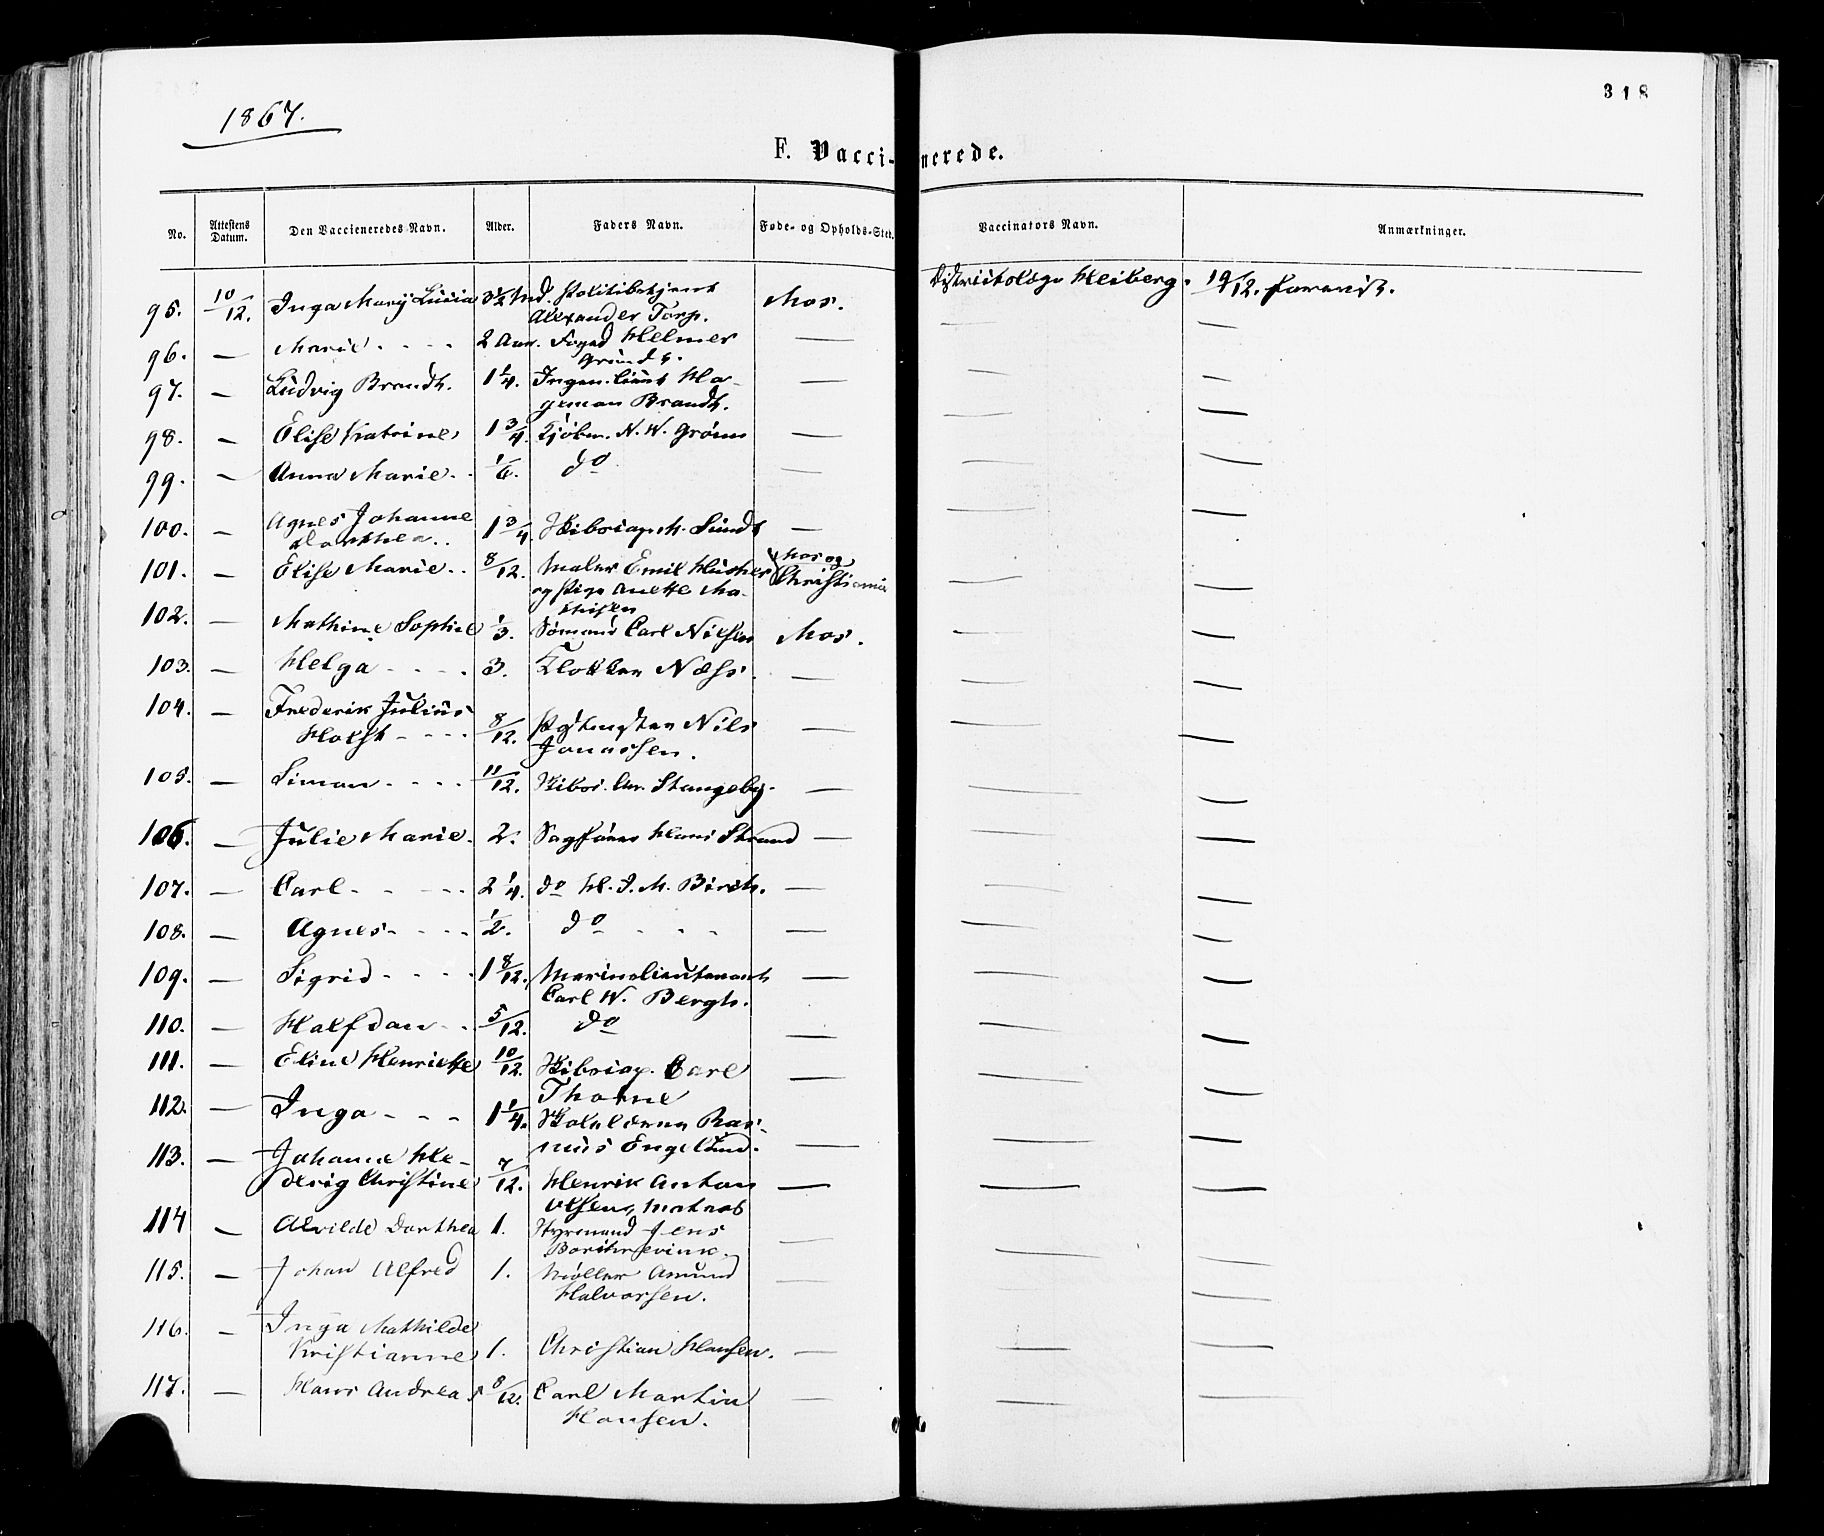 318
1867.
F. Vaccinerede.
No. Attestens Datum. Den Vaccineredes Navn. Alder. Faders Navn. Føde- og Opholds-Sted. Vaccinators Navn. Anmærkninger.
95. 10/12. Inga Mary Lucia 3 1/2 Politibetjent Mos. Heiberg. 19/12.
Alexander Torp.
96. — Marie - - - - 2 Aar. Foged Helmer — — —
Grundt.
97. — Ludvig Brandt. 1 1/4. — — —
Brandt.
98. — Elise Katrine 1 3/4. Kjøbm. N. W. Grønn — — —
99. — Anna Marie - - 1/6. do — — —
Agnes Johanne
100. — Dorthea - - 1 3/4 M. Sundt — — —
101. — Elise Marie - - 8/12. Maler Emil Mos og Christiania — —
og Pige Anette Ma-
thisen
102. — Mathine Sophie 1/3. Sømand Carl Nilsen Mos. — —
103. — Helga - - - - 3. Klokker Næss — — —
104. — Frederik Julius
Holst - - - - 8/12. Postmester Nils — — —
Jonassen.
105. — Simon - - - - 11/12. Chr. Stangeby. — — —
106. — Julie Marie. 2. Sagfører Hans Strand — — —
107. — Carl - - - - - 2 1/4. do H. J. M. Birch. — — —
108. — Agnes - - - - 1/2. do - - - — — —
109. — Sigrid - - - - 1 8/12. Marinelieutenant — — —
Carl W. Bergh.
110. — Halfdan - - 5/12. do — — —
111. — Eline Henriette 10/12. Carl — — —
Thorne
112. — Inga - - - - 1 1/4. Skolelærer Ras-
mus Engelund. — — —
113. — Johanne He-
devig Christine 7/12. Henrik Anton — — —
Olsen, Matros
114 — Alvilde Dorthea 1. Styrmand Jens — — —
115. — Johan Alfred 1. Møller Amund — — —
Halvorsen.
116. — Inga Mathilde
Kristianne 1. Christian Hansen. — — —
117. — Hans Andreas 8/12. Carl Martin — — —
Hansen.